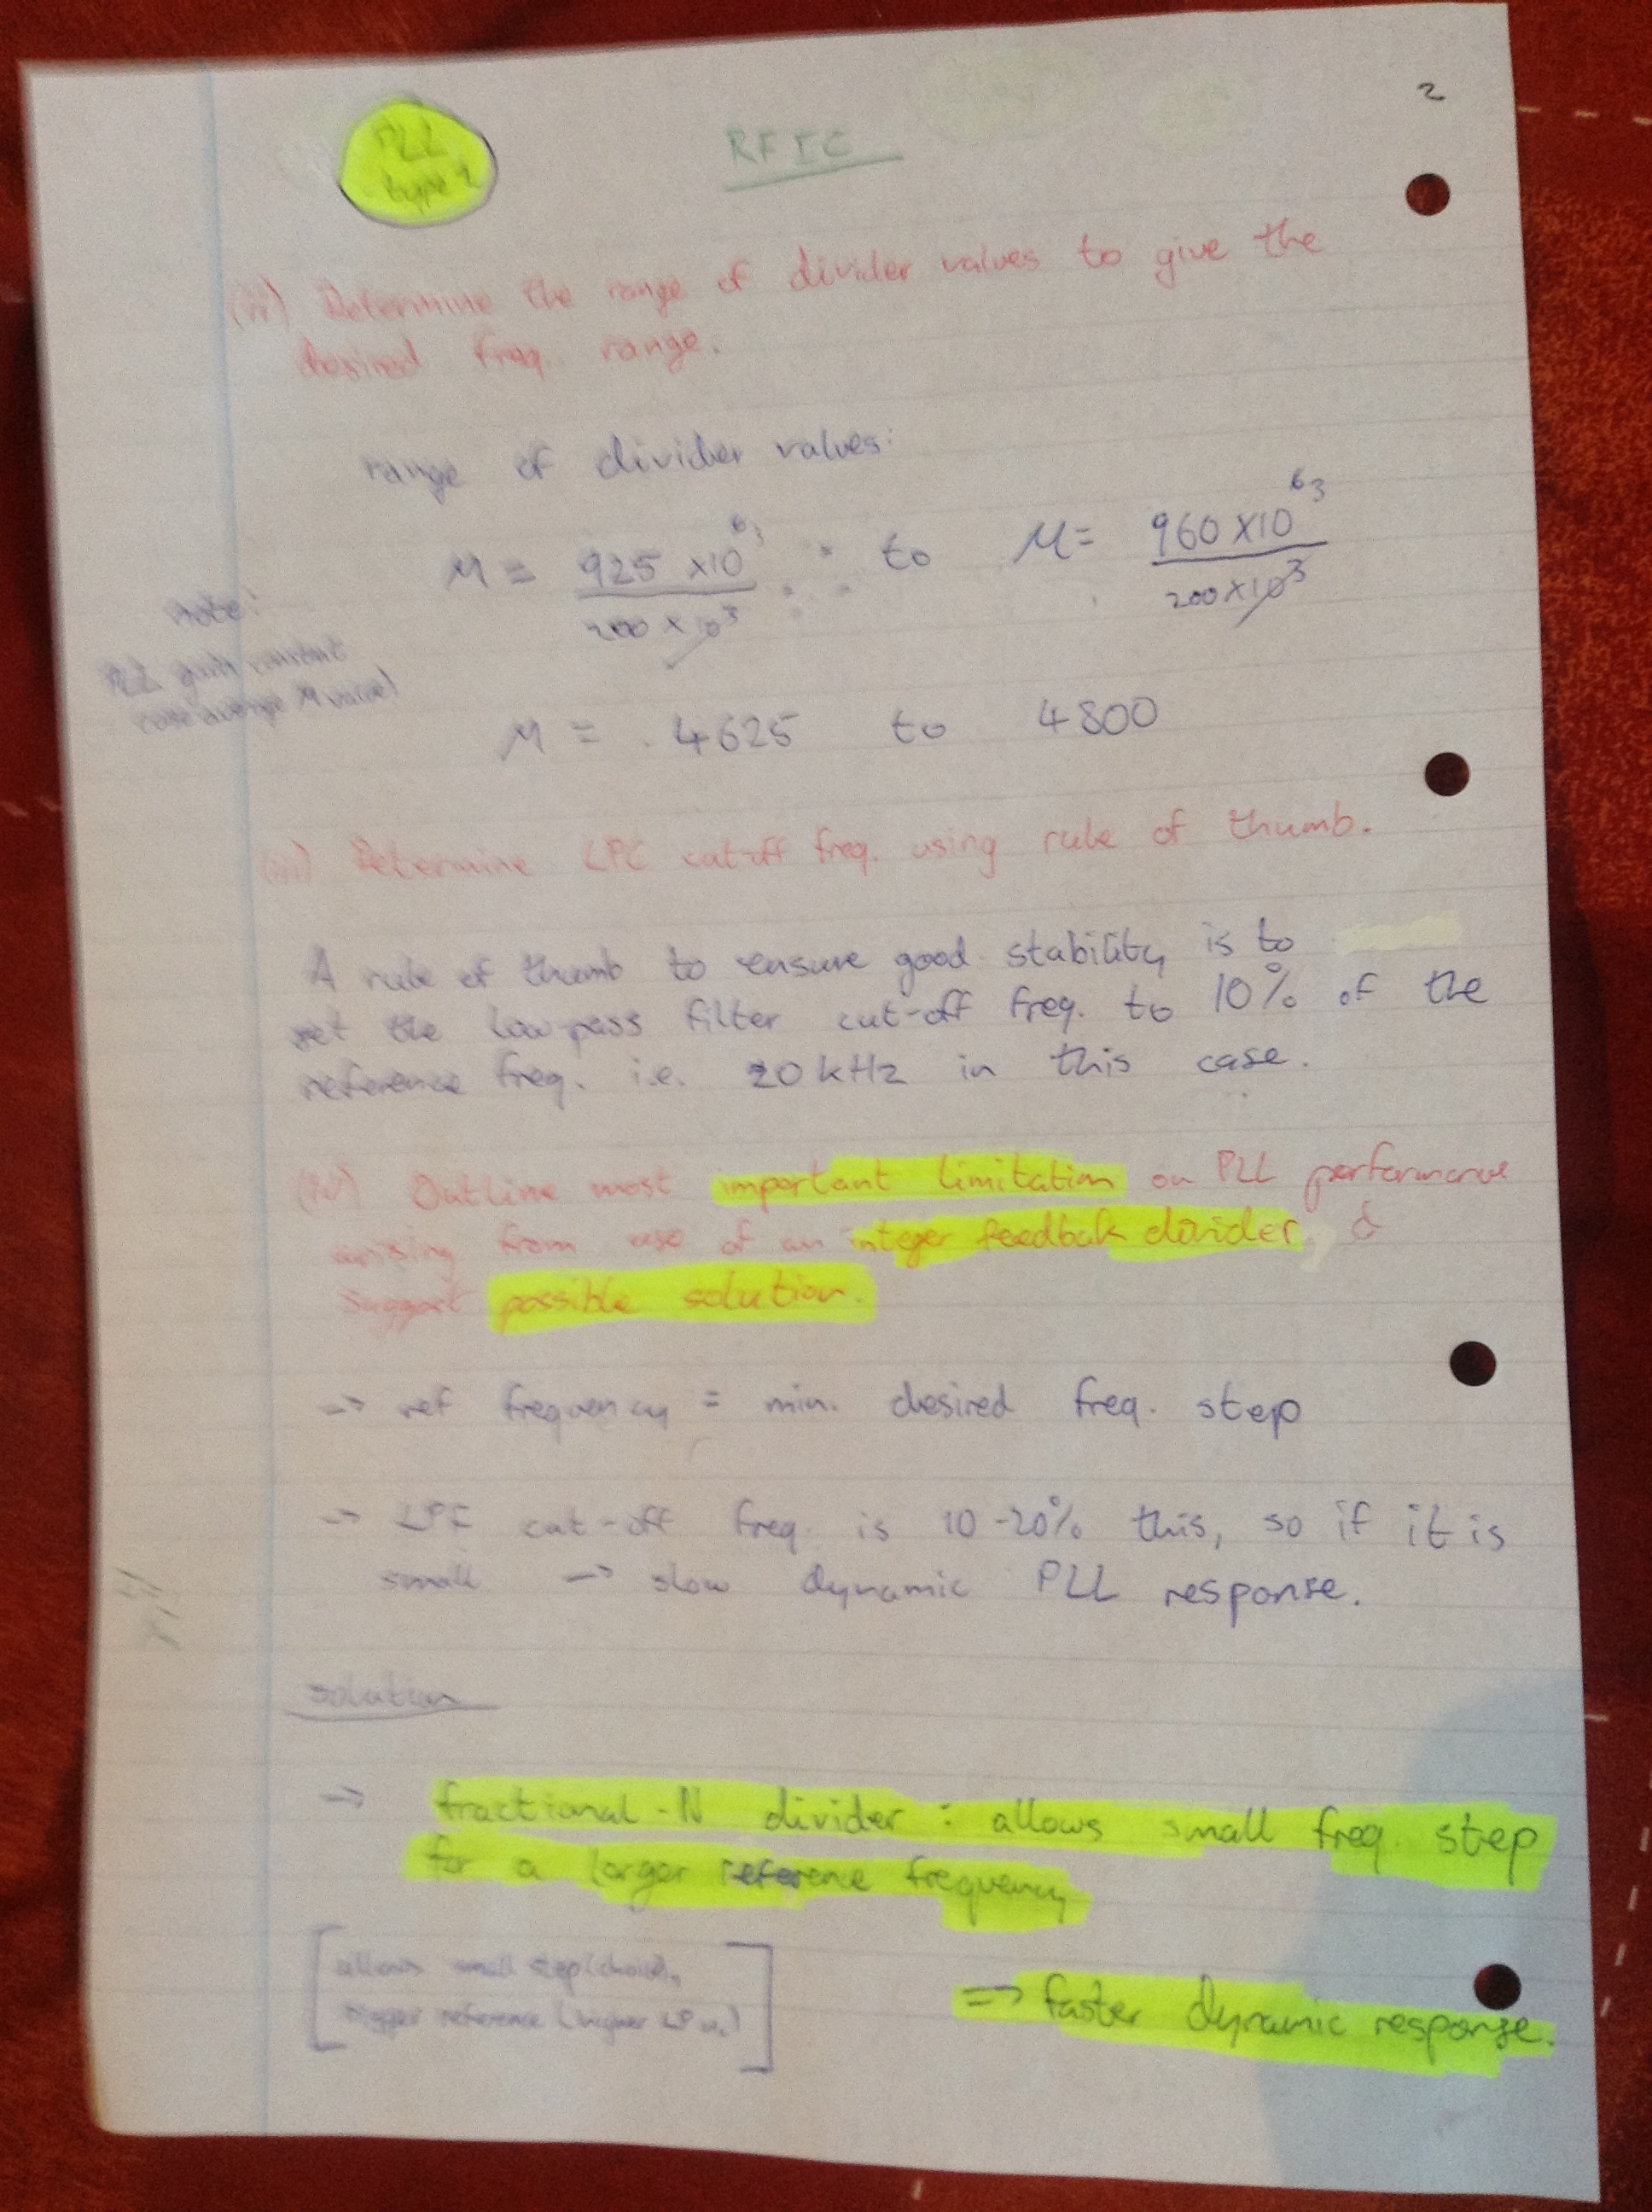 2
PLL
type 1
RFIC
(ii) Determine the range of divider values to give the
desired freq. range.
range of divider values:
M = 925 x10⁶ ³ / 200 x 10³ to M = 960 x10⁶ ³ / 200 x 10³
note:
PLL gain constant
average M value)
M = 4625 to 4800
(iii) Determine LPC cut-off freq. using rule of thumb.
A rule of thumb to ensure good stability is to
set the low-pass filter cut-off freq. to 10% of the
reference freq. i.e. 20 kHz in this case.
(iv) Outline most important limitation on PLL performance
arising from use of an integer feedback divider, &
suggest possible solution.
→ ref frequency = min. desired freq. step
→ LPF cut-off freq. is 10-20% this, so if it is
small → slow dynamic PLL response.
solution
→ fractional-N divider : allows small freq. step
for a larger reference frequency
[allows small step
bigger reference (higher LP ]
=> faster dynamic response.